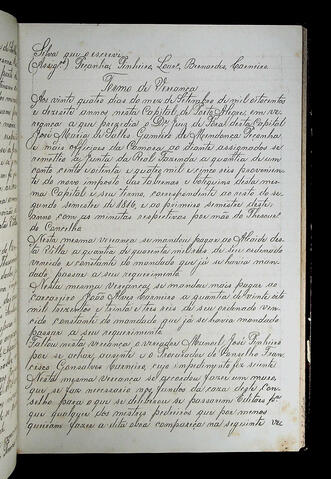 Silva que o escrevi
(Assig.) Peçanha, Pinheiro, Bernardes, Carneiro
Termo de Vereança
Aos vinte quatro dias do mez de Setembro de mil oitocentos
e dezsete annos nesta Capital de Porto Alegre, em ve-
reança a que prezedio o Dr Juiz de Fora desta Capital
José Maria de Salles Gameiro de Mendonça Peçanha
e mais officiaes da Camara ao diante assignados se
remetteo a Junta da Real Fazenda a quantia de um
conto cento oitenta e quatro mil e cinco reis provenien-
te do novo imposto das tavernas e botequins desta mes-
ma Capital e seu termo, correspondente ao resto do se-
gundo semestre de 1816, e ao primeiro semestre deste
anno com as minutas respectivas por mão do Thesourº
do Concelho
Nesta mesma vereança se mandou pagar ao Alcaide des-
ta Villa a quantia de quarenta mil reis de seu ordenado
vencido e constante do mandado que já se havia man-
dado passar a seu requerimento
Nesta mesma vereança se mandou mais pagar ao
carcereiro João Alves Carneiro a quantia de vinte oito
mil dezentos e trinta e tres reis de seu ordenado ven-
cido constante do mandado que já se havia mandado
passar a seu requerimento
Faltou nesta vereança o vereador Manoel José Pinheiro
por se achar auzente e o Procurador do Conselho Fran-
cisco Gonsalves Carneiro cujo impedimento fez sciente
Nesta mesma vereança se acordou fazer um muro,
que se faz necessario nos fundos da caza deste Con-
selho para o que se deliberou se passarem Editaes pª
que qualquer dos mestres pedreiros que por menos
queiram fazer a dita obra compareça na seguinte ve